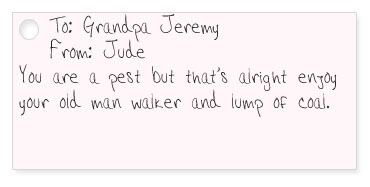 To: Grandpa Jeremy
From: Jude
You are a pest but that's alright enjoy
your old man walker and lump of coal.